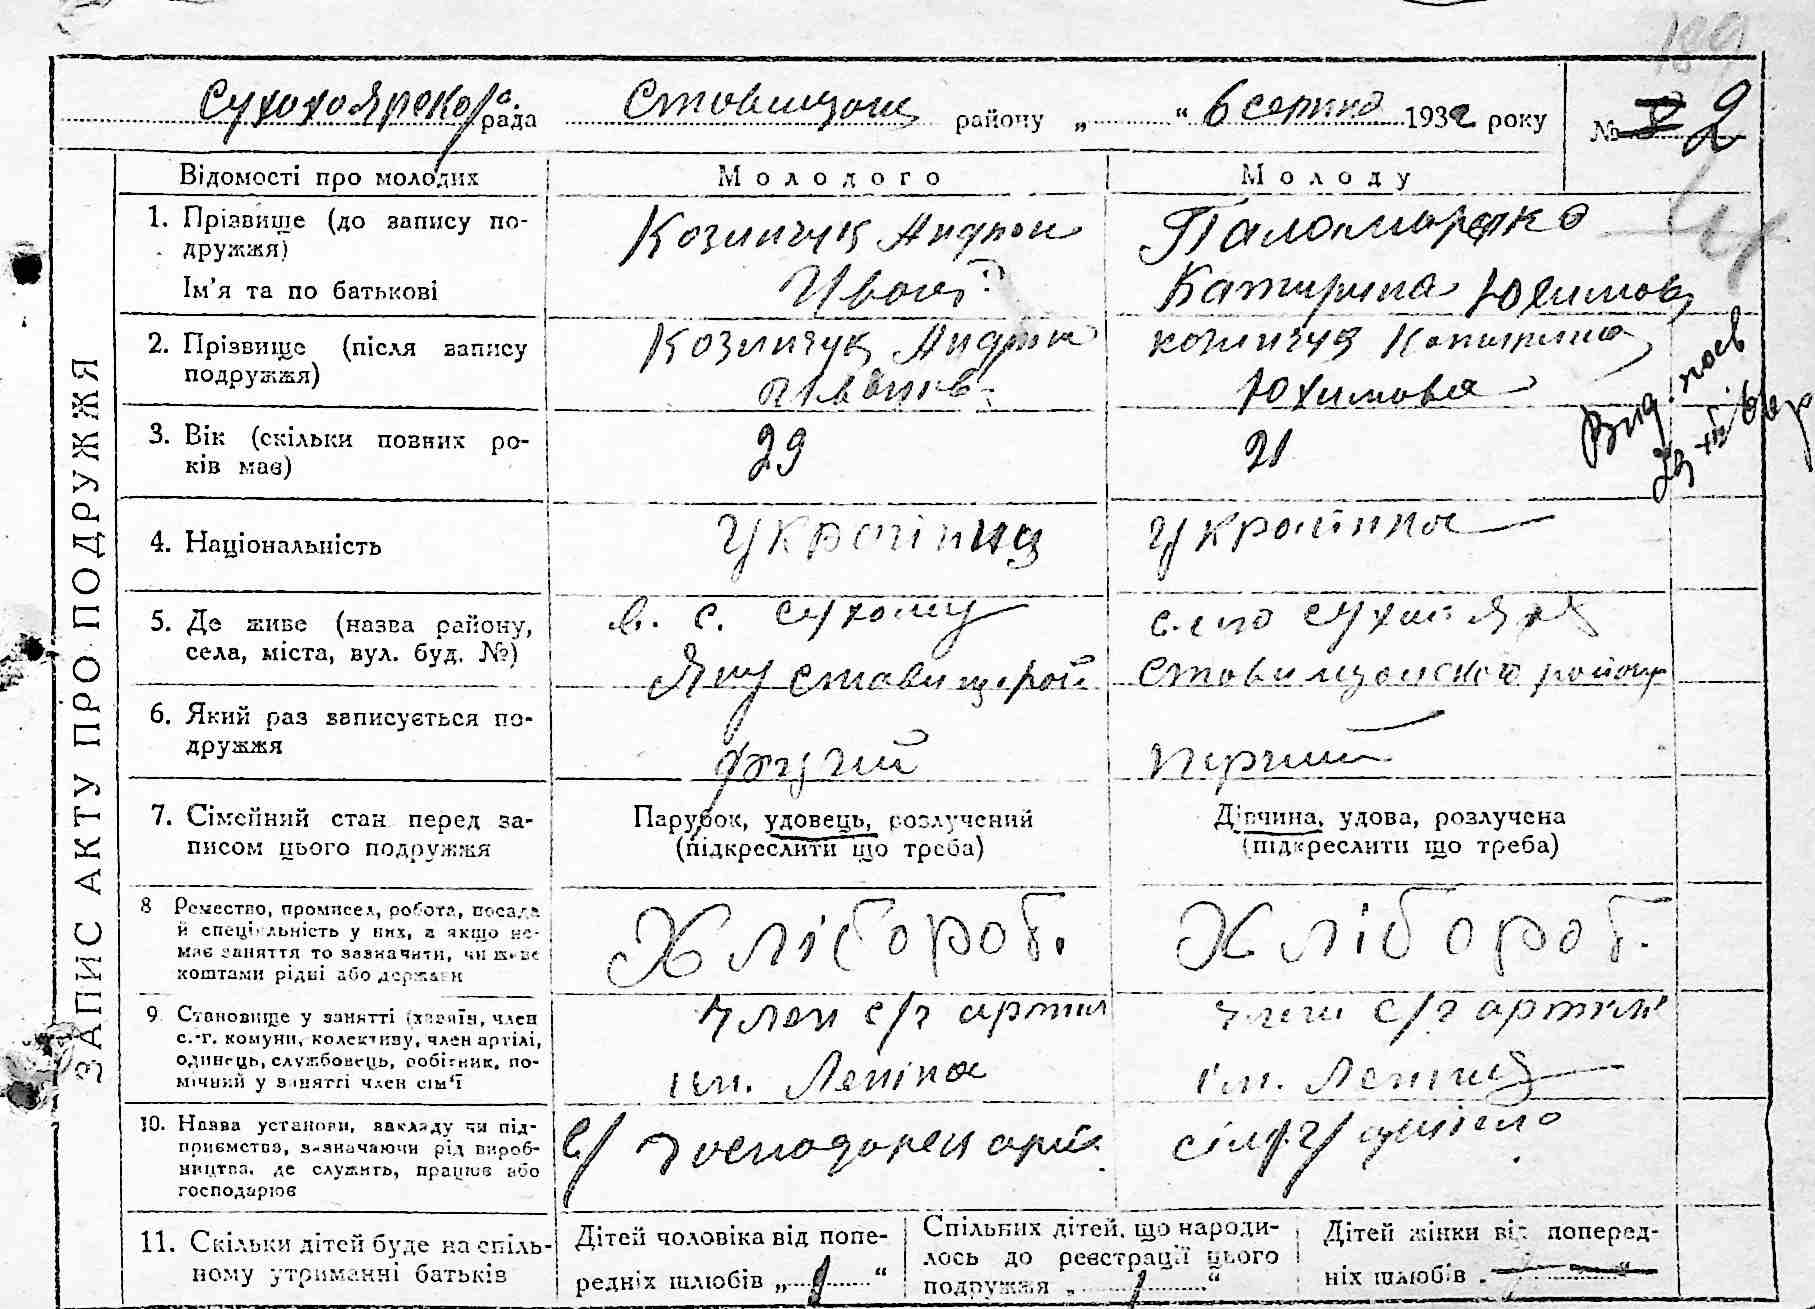 189
Сухохоярско/с рада Ставищан району „ “ 6 серпня 1932 року № 2
Відомості про молодих Молодого Молоду
ЗАПИС АКТУ ПРО ПОДРУЖЖЯ
1. Прізвище (до запису по-
дружжя)
Ім'я та по батькові
Козинчук Андрон
Іванов
Паламаренко
Катирина Юхимов
2. Прізвище (після запису
подружжя)
Козинчук Андрон
Іванов.
козинчук Катирина
Юхимовна
Вид. пасв
3. Вік (скільки повних ро-
ків має)
29
21
4. Національність
Українец
Українка
5. Де живе (назва району,
села, міста, вул. буд. №)
в. с. Сухому
Яру Ставищ. рай
село Сухий Яр
Ставищанского району
6. Який раз записується по-
дружжя
другий
перший
7. Сімейний стан перед за-
писом цього подружжя
Парубок, удовець, розлучений
(підкреслити що треба)
Дівчина, удова, розлучена
(підкреслити що треба)
8 Ремество, промисел, робота, посада
й спеціяльність у них, а якщо не-
має заняття то зазначити, чи живе
коштами рідні або держави
Хлібороб.
Хлібороб.
9. Становище у занятті (хазяїн, член
с.-г. комуни, колективу, член артілі,
одинець, службовець, робітник, по-
мічний у занятті член сім'ї
член с/г артіл
ім. Леніна
член с/г артілі
ім. Леніна
10. Назва установи, закладу чи під-
приємства, зазначаючи рід вироб-
ництва, де служить, працює або
господарює
с/господарсн арті.
11. Скільки дітей буде на спіль-
ному утриманні батьків
Дітей чоловіка від попе-
редніх шлюбів „ 1 “
Спільних дітей, що народи-
лось до реєстрації цього
подружжя „ “
Дітей жінки від поперед-
ніх шлюбів „ “